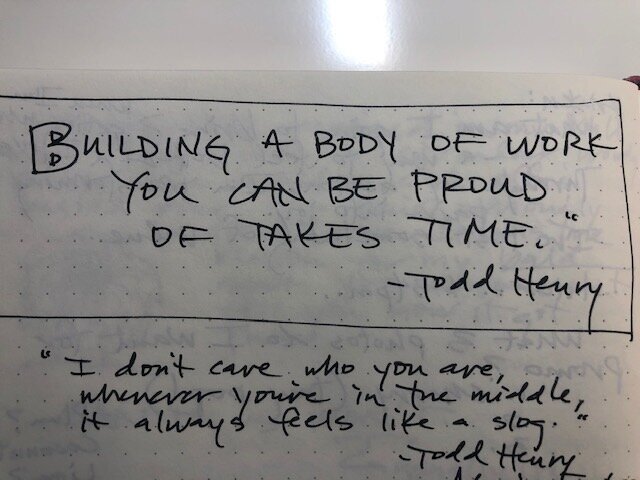 BUILDING A BODY OF WORK
YOU CAN BE PROUD
OF TAKES TIME."
-Todd Henry
"I don't care who you are,
whenever you're in the middle,
it always feels like a slog."
-Todd Henry